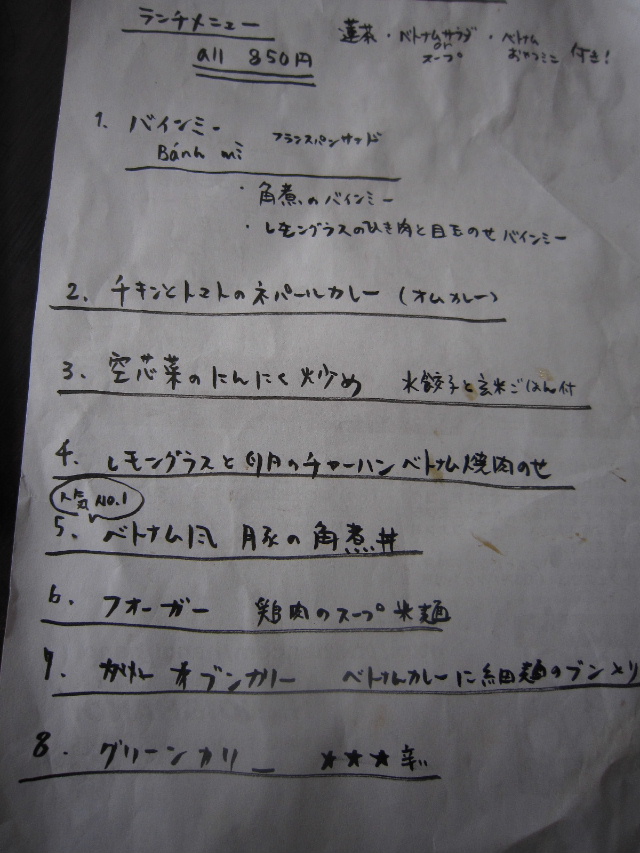 ランチメニュー
all 850円
蓮茶・ベトナムサラダ or スープ・ベトナムおやつミニ 付き!
1. バインミー フランスパンサンド
Bánh mì
・角煮のバインミー
・レモングラスのひき肉と目玉のせバインミー
2. チキンとトマトのネパールカレー (オムカレー)
3. 空芯菜のにんにく炒め 水餃子と玄米ごはん付
4. レモングラスと卵のチャーハン ベトナム焼肉のせ
人気 No.1
5. ベトナム風 豚の角煮丼
6. フオーガー 鶏肉のスープ米麺
7. ブンカリー ベトナムカレーに細麺のブン入り
8. グリーンカリー ★★★辛い